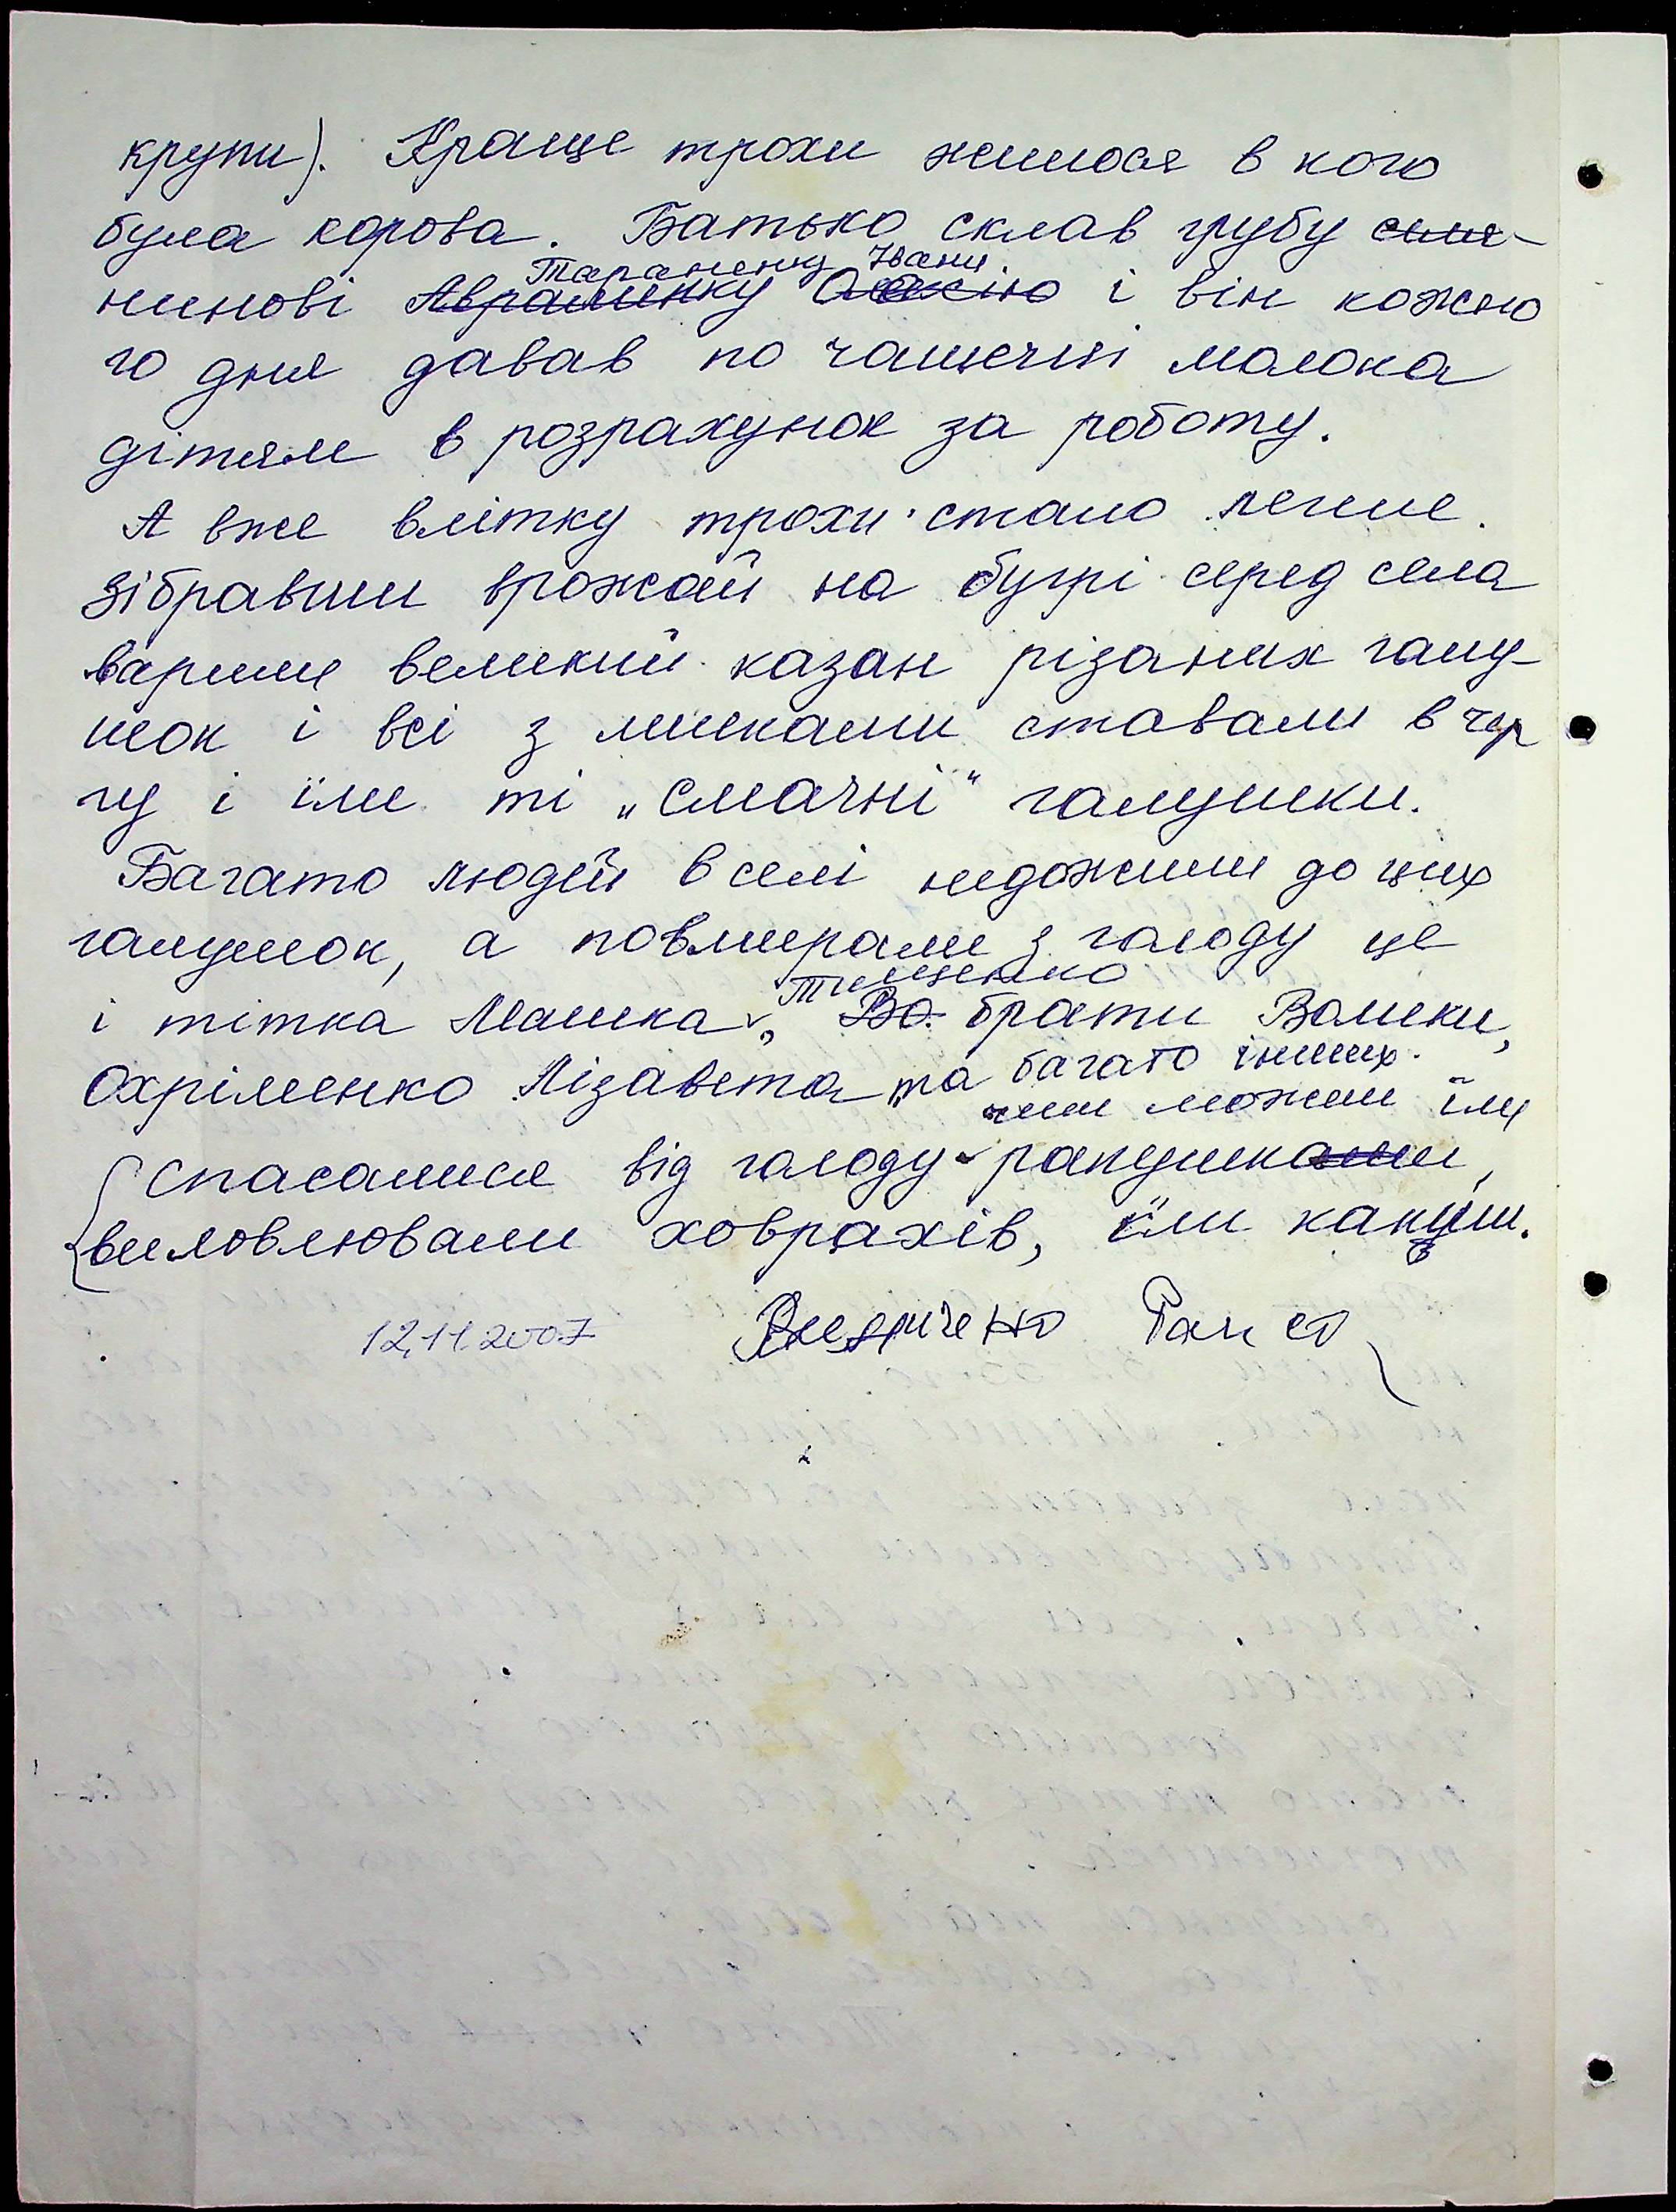 крупи). Краще трохи жилося в кого
була корова. Батько склав грубу селя-
Тараненку Івану
нинові Авраменку Олексію і він кожно
го дня давав по чашечці молока
дітям в розрахунок за роботу.
А вже влітку трохи стало легше.
Зібравши врожай на бугрі серед села
варили великий казан різаних галу-
шок і всі з мисками ставали в чер
гу і їли ті „смачні“ галушки.
Багато людей в селі недожили до цих
галушок, а повмирали з голоду це
Тищенко
і тітка Машка, Во. брати Вольки,
Охріменко Лізавета та багато інших.
чим можим їли
Спасалися від голоду ракушками,
виловлювали ховрахів, їли капуци.
12.11.2007